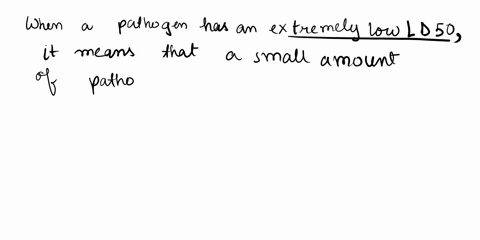 When a pathogen has an extremely low LD50,
it means that a small amount
of patho